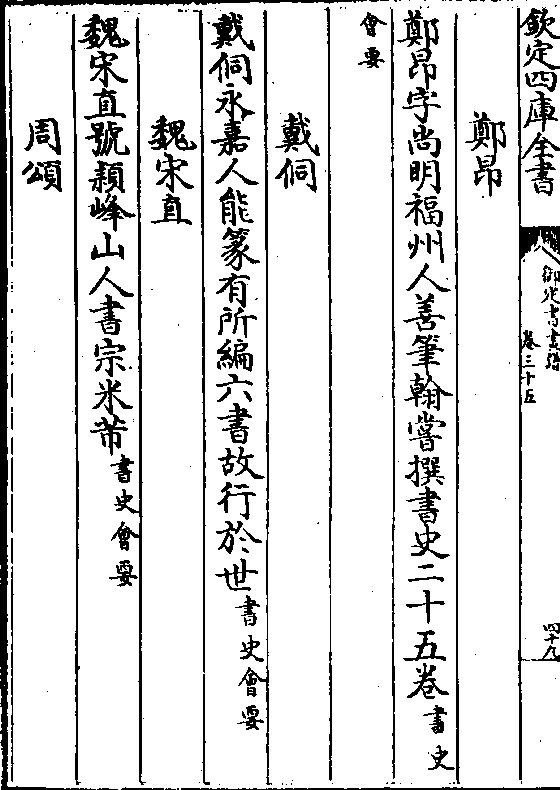 欽定四庫全書
御定書畫譜
卷三十五
四十九
鄭昂
鄭昂字尚明福州人善筆翰嘗撰書史二十五卷書史
會要
戴侗
戴侗永嘉人能篆有所編六書故行於世書史會要
魏宋直
魏宋直號頴峰山人書宗米芾書史會要
周頌